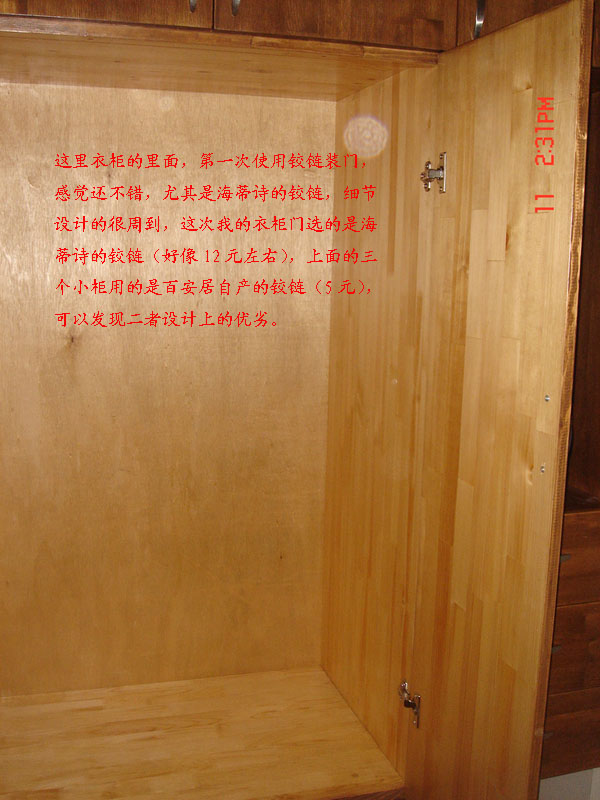 这里衣柜的里面，第一次使用铰链装门，
感觉还不错，尤其是海蒂诗的铰链，细节
设计的很周到，这次我的衣柜门选的是海
蒂诗的铰链（好像12元左右），上面的三
个小柜用的是百安居自产的铰链（5元），
可以发现二者设计上的优劣。
11 2:31PM